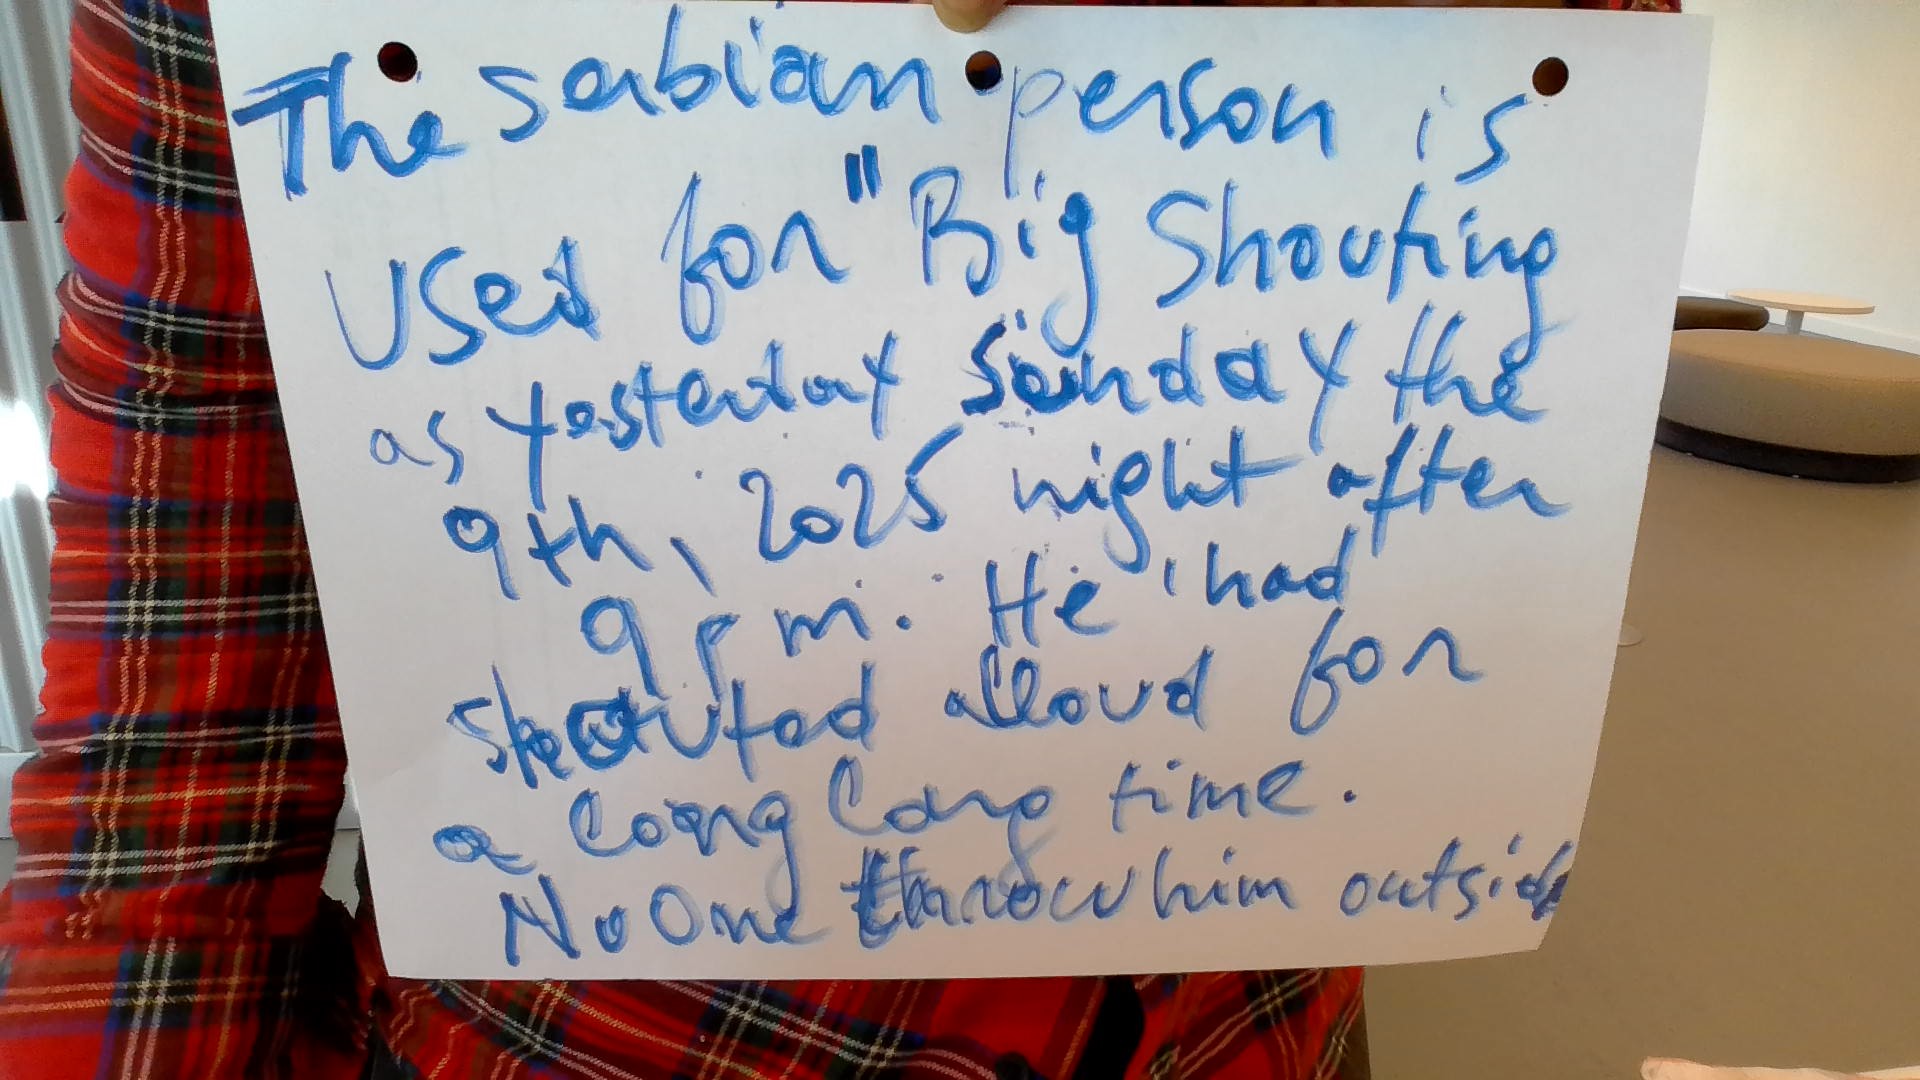 The serbian person is
Used for "Big Shouting
as yesterday Sunday the
9th, 2025 night after
9 pm. He had
shouted alloud for
a long long time.
No One throw him outside